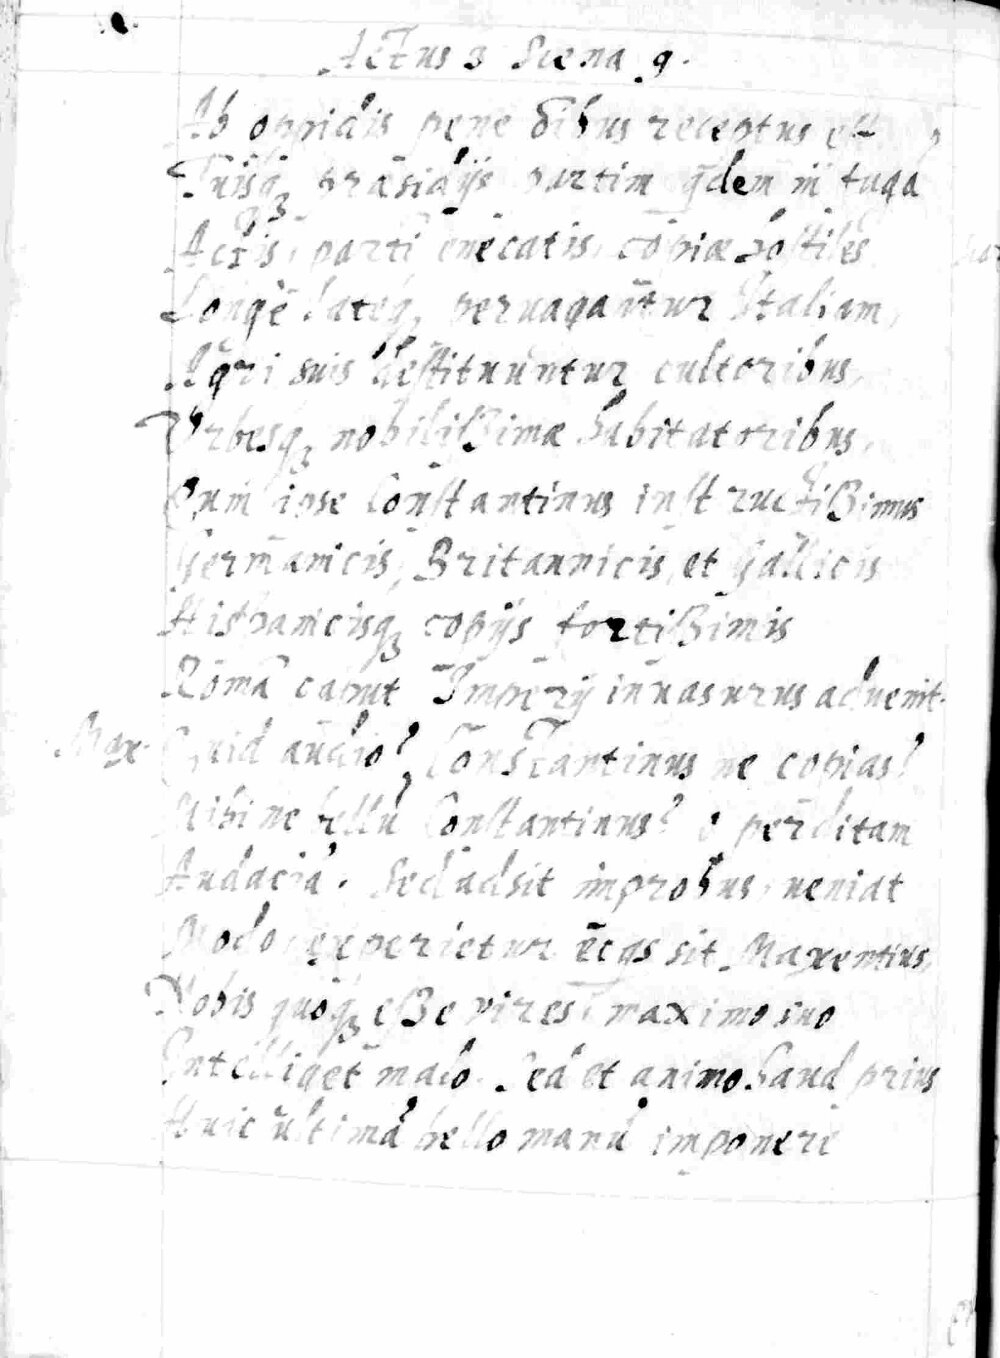 Actus 3 Scena 9.
Ab oppidis pene o͞ibus receptus est
Tuisq̨ præsidijs partim q̄dem in fuga
Actis, partī enecatis, copiæ hostiles
Longè latèq̨ peruagantur Italiam,
Agri suis destituuntur cultoribus,
Vrbesq̨ nobilißimæ habitatoribus,
Cum ipse Constantinus instructißimus
Germanicis, Britannicis, et Gallicis
Hispanicisq̨ copijs fortißimis
Romā caput Imperij inuasurus aduenit.
Max. Quid audio? Constantinus ne copias?
Mihi ne bellū Constantinus? ô perditam
Audaciā. Sed adsit improbus, ueniat
Modo, experietur ecq̄s sit Maxentius,
Nobis quoq̨ eße vires, maximo suo
Intelliget malo. Sed et animo haud prius
Huic ultimā bello manū imponere